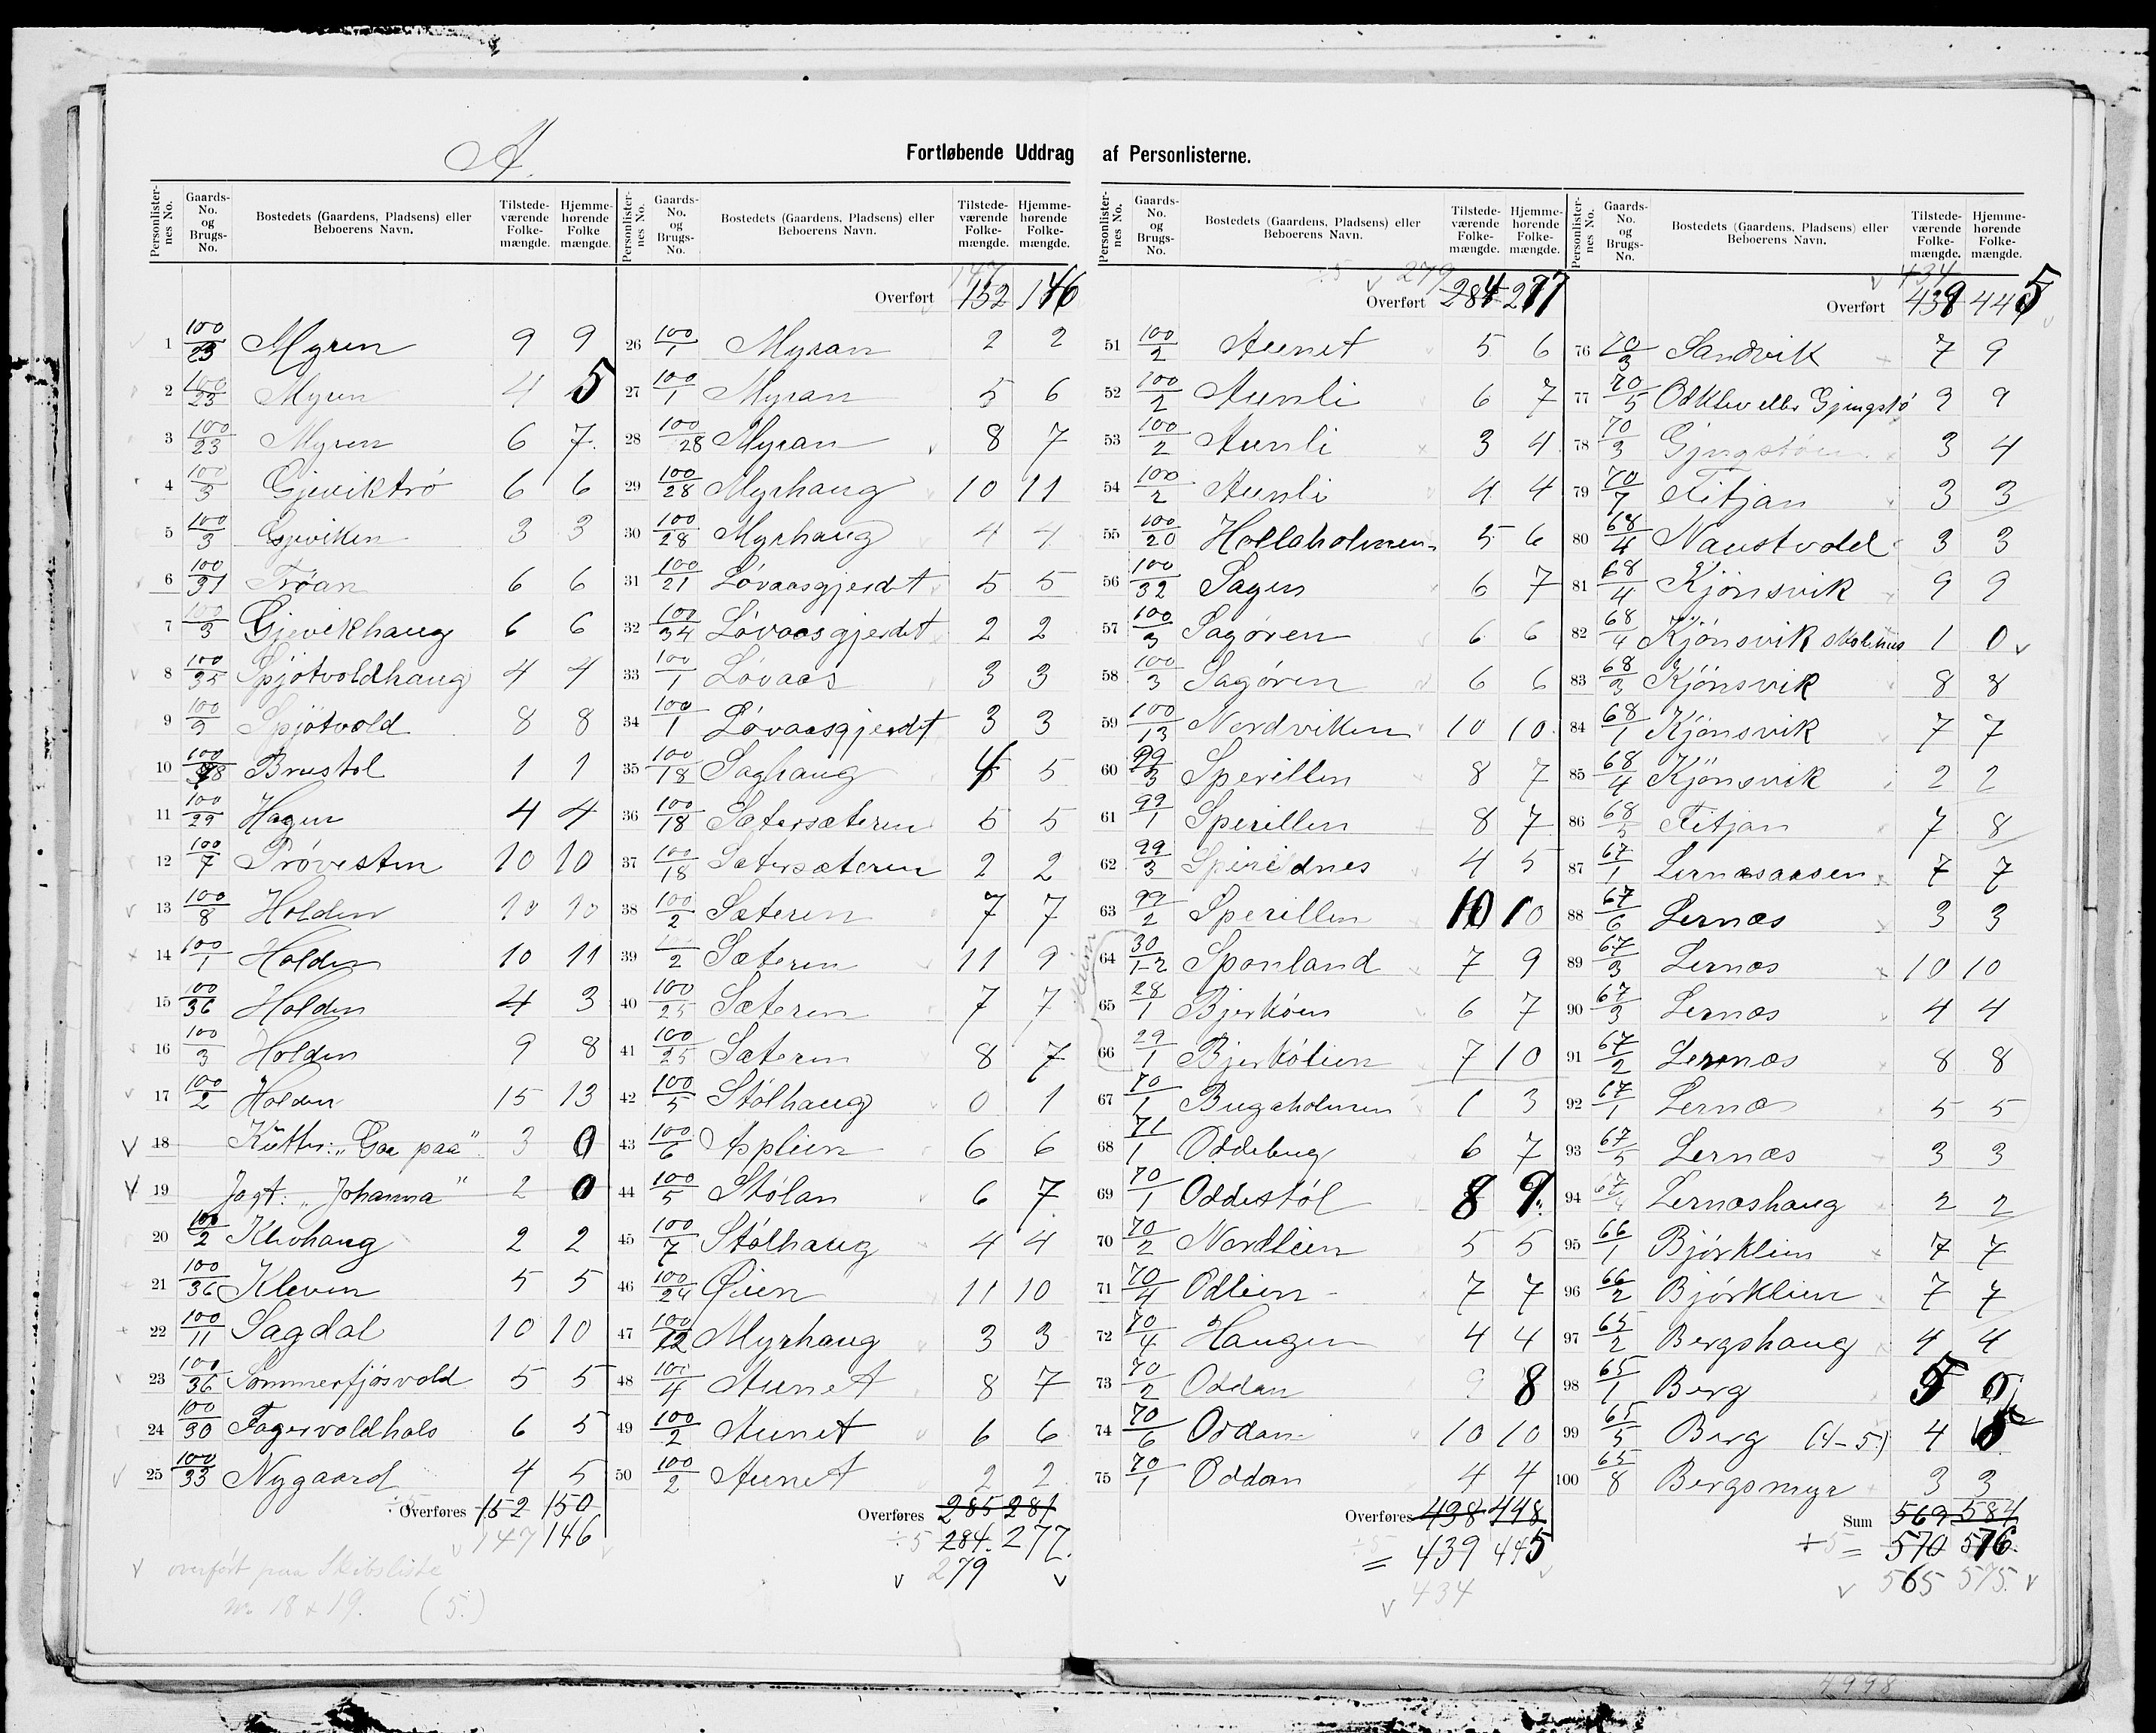 A.
Fortløbende Uddrag af Personlisterne.
Personlister-nes No. Gaards-No. og Brugs-No. Bostedets (Gaardens, Pladsens) eller Beboerens Navn. Tilstede-værende Folke-mængde. Hjemme-hørende Folke mængde.
1 100/23 Myren 9 9
2 100/23 Myren 4 5
3 100/23 Myren 6 7
4 100/3 Gjeviktrö 6 6
5 100/3 Gjeviken 3 3
6 100/31 Tröan 6 6
7 100/3 Gjevikhaug 6 6
8 100/35 Spjötvoldhaug 4 4
9 100/3 Spjötvold 8 8
10 100/38 Brustöl 1 1
11 100/29 Hagen 4 4
12 100/7 Prövesten 10 10
13 100/8 Holden 10 10
14 100/1 Holden 10 11
15 100/36 Holden 4 3
16 100/3 Holden 9 8
17 100/2 Holden 15 13
18 Kutter: "Gaa paa" 3 0
19 Jagt: "Johanna" 2 0
20 100/2 Klevhaug 2 2
21 100/36 Kleven 5 5
22 100/11 Sagdal 10 10
23 100/36 Sommerfjösvold 5 5
24 100/30 Fagervoldhals 6 5
25 100/33 Nygaard 4 5
÷5 Overføres 152 150
147 146
v overfört paa Skibsliste
No 18 & 19. (5.)
Personlister-nes No. Gaards-No. og Brugs-No. Bostedets (Gaardens, Pladsens) eller Beboerens Navn. Tilstede-værende Folke-mængde. Hjemme-hørende Folke mængde.
147
Overført 152 146
26 100/1 Myran 2 2
27 100/1 Myran 5 6
28 100/28 Myran 8 7
29 100/28 Myrhaug 10 11
30 100/28 Myrhaug 4 4
31 100/21 Lövaasgjerdet 5 5
32 100/34 Lövaasgjerdet 2 2
33 100/1 Lövaas 3 3
34 100/1 Lövaasgjerdet 3 3
35 100/18 Saghaug 5
36 100/18 Sætersæteren 5 5
37 100/18 Sætersæteren 2 2
38 100/2 Sæteren 7 7
39 /2 Sæteren 11 9
40 100/25 Sæteren 7 7
41 100/25 Sæteren 8 7
42 100/5 Stölhaug 0 1
43 100/6 Asplien 6 6
44 100/5 Stölan 6 7
45 100/7 Stölhaug 4 4
46 100/24 Øien 11 10
47 100/12 Myrhaug 3 3
48 100/4 Aunet 8 7
49 100/2 Aunet 6 6
50 100/2 Aunet 2 2
Overføres 285 281
÷5 284. 277.
v 279 v
Personlister-nes No. Gaards-No. og Brugs-No. Bostedets (Gaardens, Pladsens) eller Beboerens Navn. Tilstede-værende Folke-mængde. Hjemme-hørende Folke-mængde.
÷5 v 279
Overført 284 277
51 100/2 Aunet 5 6
52 100/2 Aunli 6 7
53 100/2 Aunli 3 4
54 100/2 Aunli 4 4
55 100/20 Hollaholmen 5 6
56 100/32 Sagen 6 7
57 100/3 Sagören 6 6
58 100/3 Sagören 6 6
59 100/13 Nordviken 10 10
60 99/3 Sperillen 8 7
61 99/1 Sperillen 8 7
62 99/3 Sperildnes 4 5
63 99/2 Sperillen 10 10
64 30/1-2 Sponland 7 9
65 28/1 Bjerköen 6 7
66 29/1 Bjerkölien 7 10
67 70/1 Bugaholmen 1 3
68 71/1 Oddebug 6 7
69 70/1 Oddestöl 8 9
70 70/2 Nordlien 5 5
71 70/4 Odlien 7 7
72 70/4 Haugen 4 4
73 70/2 Oddan 9 8
74 70/6 Oddan 10 10
75 70/1 Oddan 4 4
Overføres 438 448
÷5 = 439 445
v 434
Personlister-nes No. Gaards-No. og Brugs-No. Bostedets (Gaardens, Pladsens) eller Beboerens Navn. Tilstede-værende Folke-mængde. Hjemme-hørende Folke-mængde.
v 434
Overført 439 445
76 70/3 Sandvik 7 9
77 70/5 Odklev eller Gjengstö 9 9
78 70/3 Gjngstöen 3 4
79 70/7 Titjan 3 3
80 68/4 Naustvold 3 3
81 68/4 Kjönsvik 9 9
82 68/4 Kjönsvik skolehus 1 0 v
83 68/3 Kjönsvik 8 8
84 68/1 Kjönsvik 7 7
85 68/4 Kjönsvik 2 2
86 68/5 Titjan 7 8
87 67/1 Lernæsaasen 7 7
88 67/6 Lernæs 3 3
89 67/3 Lernæs 10 10
90 67/3 Lernæs 4 4
91 67/2 Lernæs 8 8
92 67/1 Lernæs 5 5
93 67/5 Lernæs 3 3
94 67/4 Lernæshaug 2 2
95 66/1 Björklien 7 7
96 66/2 Björklien 7 7
97 65/2 Bergshaug 4 4
98 65/1 Berg 5
99 65/5 Berg (4-5) 4
100 65/8 Bergsmyr 3 3
Sum 569 584
÷5 = 570 576
v 565 575. v
4998